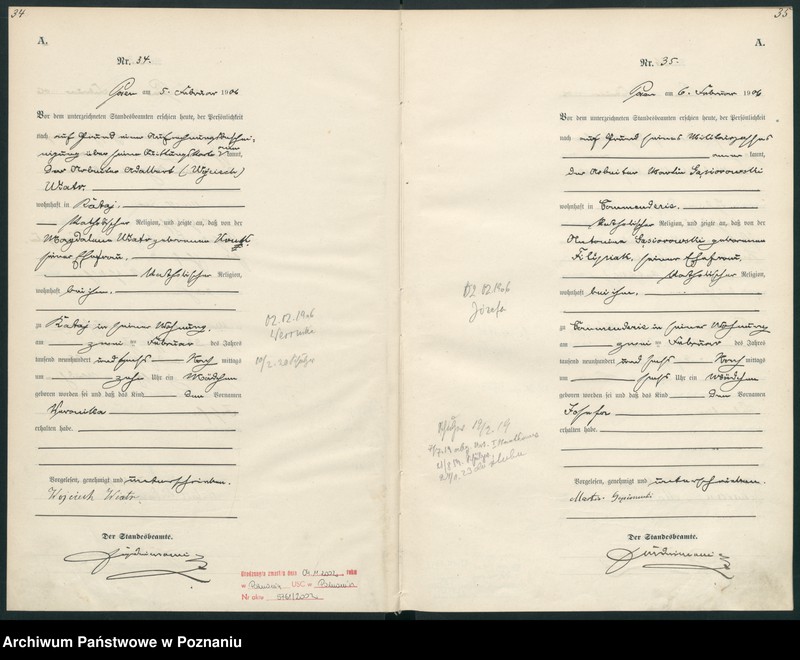 34
A.
Nr. 34.
am 5. Februar 1906
Vor dem unterzeichneten Standesbeamten erschien heute, der Persönlichkeit
nach auf Grund einer
kannt,
der Arbeiter Adalbert (Wojciech)
Wiatr.
wohnhaft in Rataj.
katholischer Religion, und zeigte an, daß von der
Magdalena Wiatr geborenen
seiner Ehefrau.
katholischer Religion,
wohnhaft bei ihm.
zu Rataj in seiner Wohnung.
am zwei ten Februar des Jahres
tausend neunhundert und sechs Nach mittags
um zehn Uhr ein Mädchen
geboren worden sei und daß das Kind den Vornamen
Veronika
erhalten habe.
Vorgelesen, genehmigt und unterschrieben.
Wojciech Wiatr.
Der Standesbeamte.
02.02.1906
Weronika
Urodzony/a zmarł/a dnia 04.11.2002 roku
w Poznaniu USC w Poznaniu
Nr aktu 5761/2002
35
A.
Nr. 35.
am 6. Februar 1906
Vor dem unterzeichneten Standesbeamten erschien heute, der Persönlichkeit
nach auf Grund seines Militärpasses
kannt,
der Arbeiter Martin Gąsiorowski
wohnhaft in Commenderie.
katholischer Religion, und zeigte an, daß von der
Antonina Gąsiorowski geborenen
Filipiak, seiner Ehefrau,
katholischer Religion,
wohnhaft bei ihm.
zu Commenderie in seiner Wohnung
am zwei ten Februar des Jahres
tausend neunhundert und sechs Nach mittags
um sechs Uhr ein Mädchen
geboren worden sei und daß das Kind den Vornamen
Josefa
erhalten habe.
Vorgelesen, genehmigt und unterschrieben.
Der Standesbeamte.
02.02.1906
Józefa
Archiwum Państwowe w Poznaniu